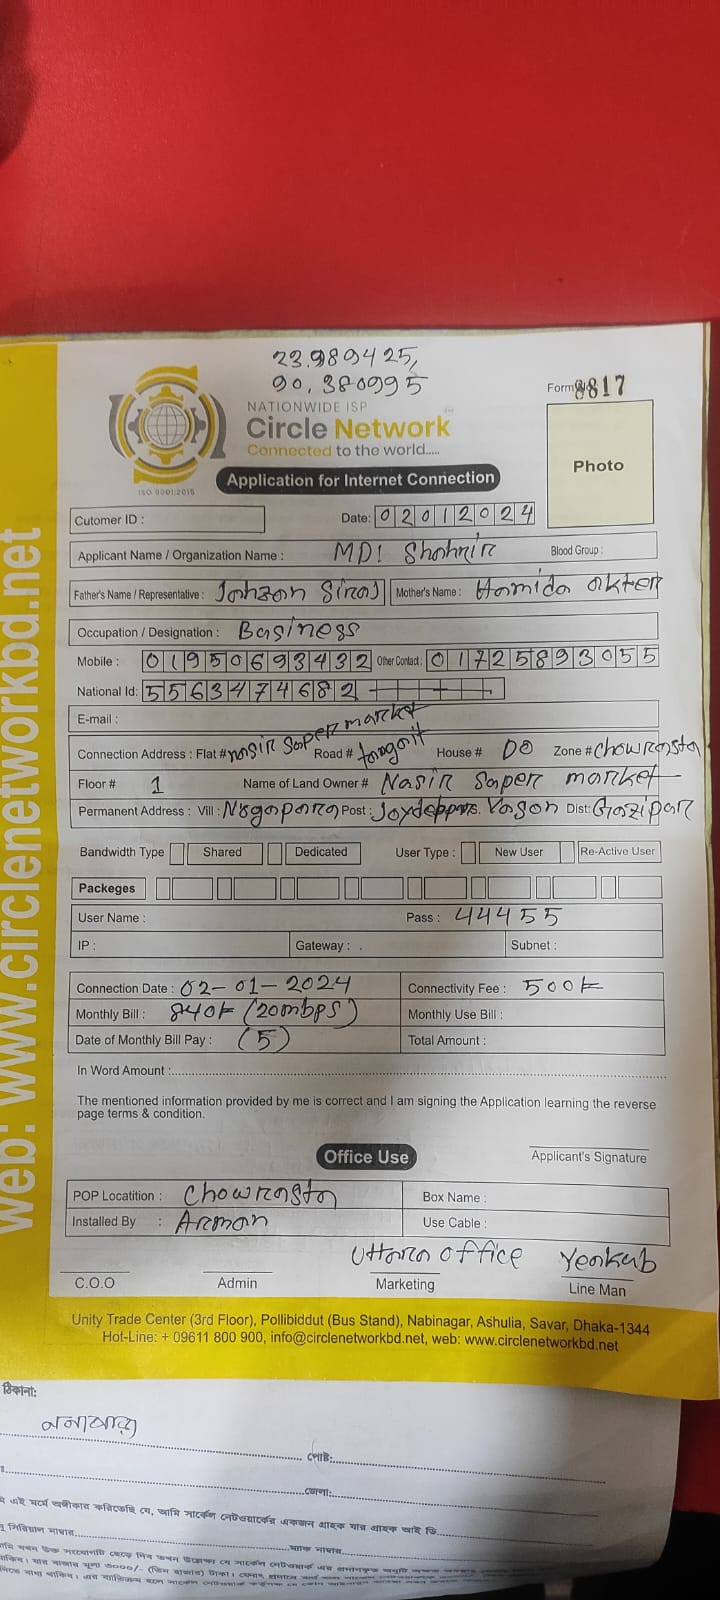 23.989425,
90.380995
NATIONWIDE ISP
Circle Network
Connected to the world.....
ISO 9001:2015
Form 8817
Photo
Application for Internet Connection
Cutomer ID :
Date: 02012024
Applicant Name / Organization Name : MD! Shahnir Blood Group :
Father's Name / Representative : Jahson Siraj Mother's Name : Hamida akter
Occupation / Designation : Basiness
Mobile : 01950693432 Other Contact : 01725893055
National Id: 5563474682
E-mail :
Connection Address : Flat # nasir Saper market Road # House # DO Zone # Chowrasta
Floor # 1 Name of Land Owner # Nasir Saper market
Permanent Address : Vill : Nogapara Post : Vason Dist: Gazipar
Bandwidth Type Shared Dedicated User Type : New User Re-Active User
Packeges
User Name : Pass : 44455
IP : Gateway : . Subnet :
Connection Date : 02-01-2024 Connectivity Fee : 500
Monthly Bill : 840 (20mbps) Monthly Use Bill :
Date of Monthly Bill Pay : (5) Total Amount :
In Word Amount :
The mentioned information provided by me is correct and I am signing the Application learning the reverse
page terms & condition.
Applicant's Signature
Office Use
POP Locatition : Chowrasta Box Name :
Installed By : Arman Use Cable :
Uttara office Yeakub
C.O.O Admin Marketing Line Man
Unity Trade Center (3rd Floor), Pollibiddut (Bus Stand), Nabinagar, Ashulia, Savar, Dhaka-1344
Hot-Line: + 09611 800 900, info@circlenetworkbd.net, web: www.circlenetworkbd.net
web: www.circlenetworkbd.net
ঠিকানা:
পোষ্ট:
জেলা:
এই মর্মে অঙ্গীকার করিতেছি যে, আমি সার্কেল নেটওয়ার্কের একজন গ্রাহক যার গ্রাহক আই ডি
সিরিয়াল নাম্বার